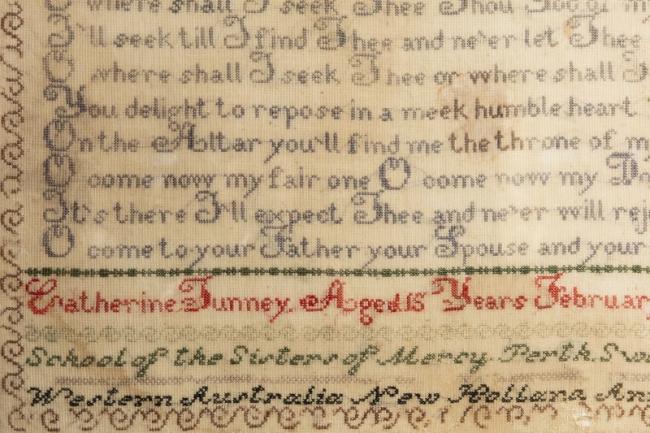 where shall I seek Thee Thou God of m
I'll seek till I find Thee and ne'er let Thee
O where shall I seek Thee or where shall I
You delight to repose in a meek humble heart
On the Altar you'll find me the throne of m
O come now my fair one O come now my D
It's there I'll expect Thee and ne'er will rej
O come to your Father your Spouse and your
Catherine Tunney Aged 16 Years Februar
School of the Sisters of Mercy Perth Swa
Western Australia New Holland An